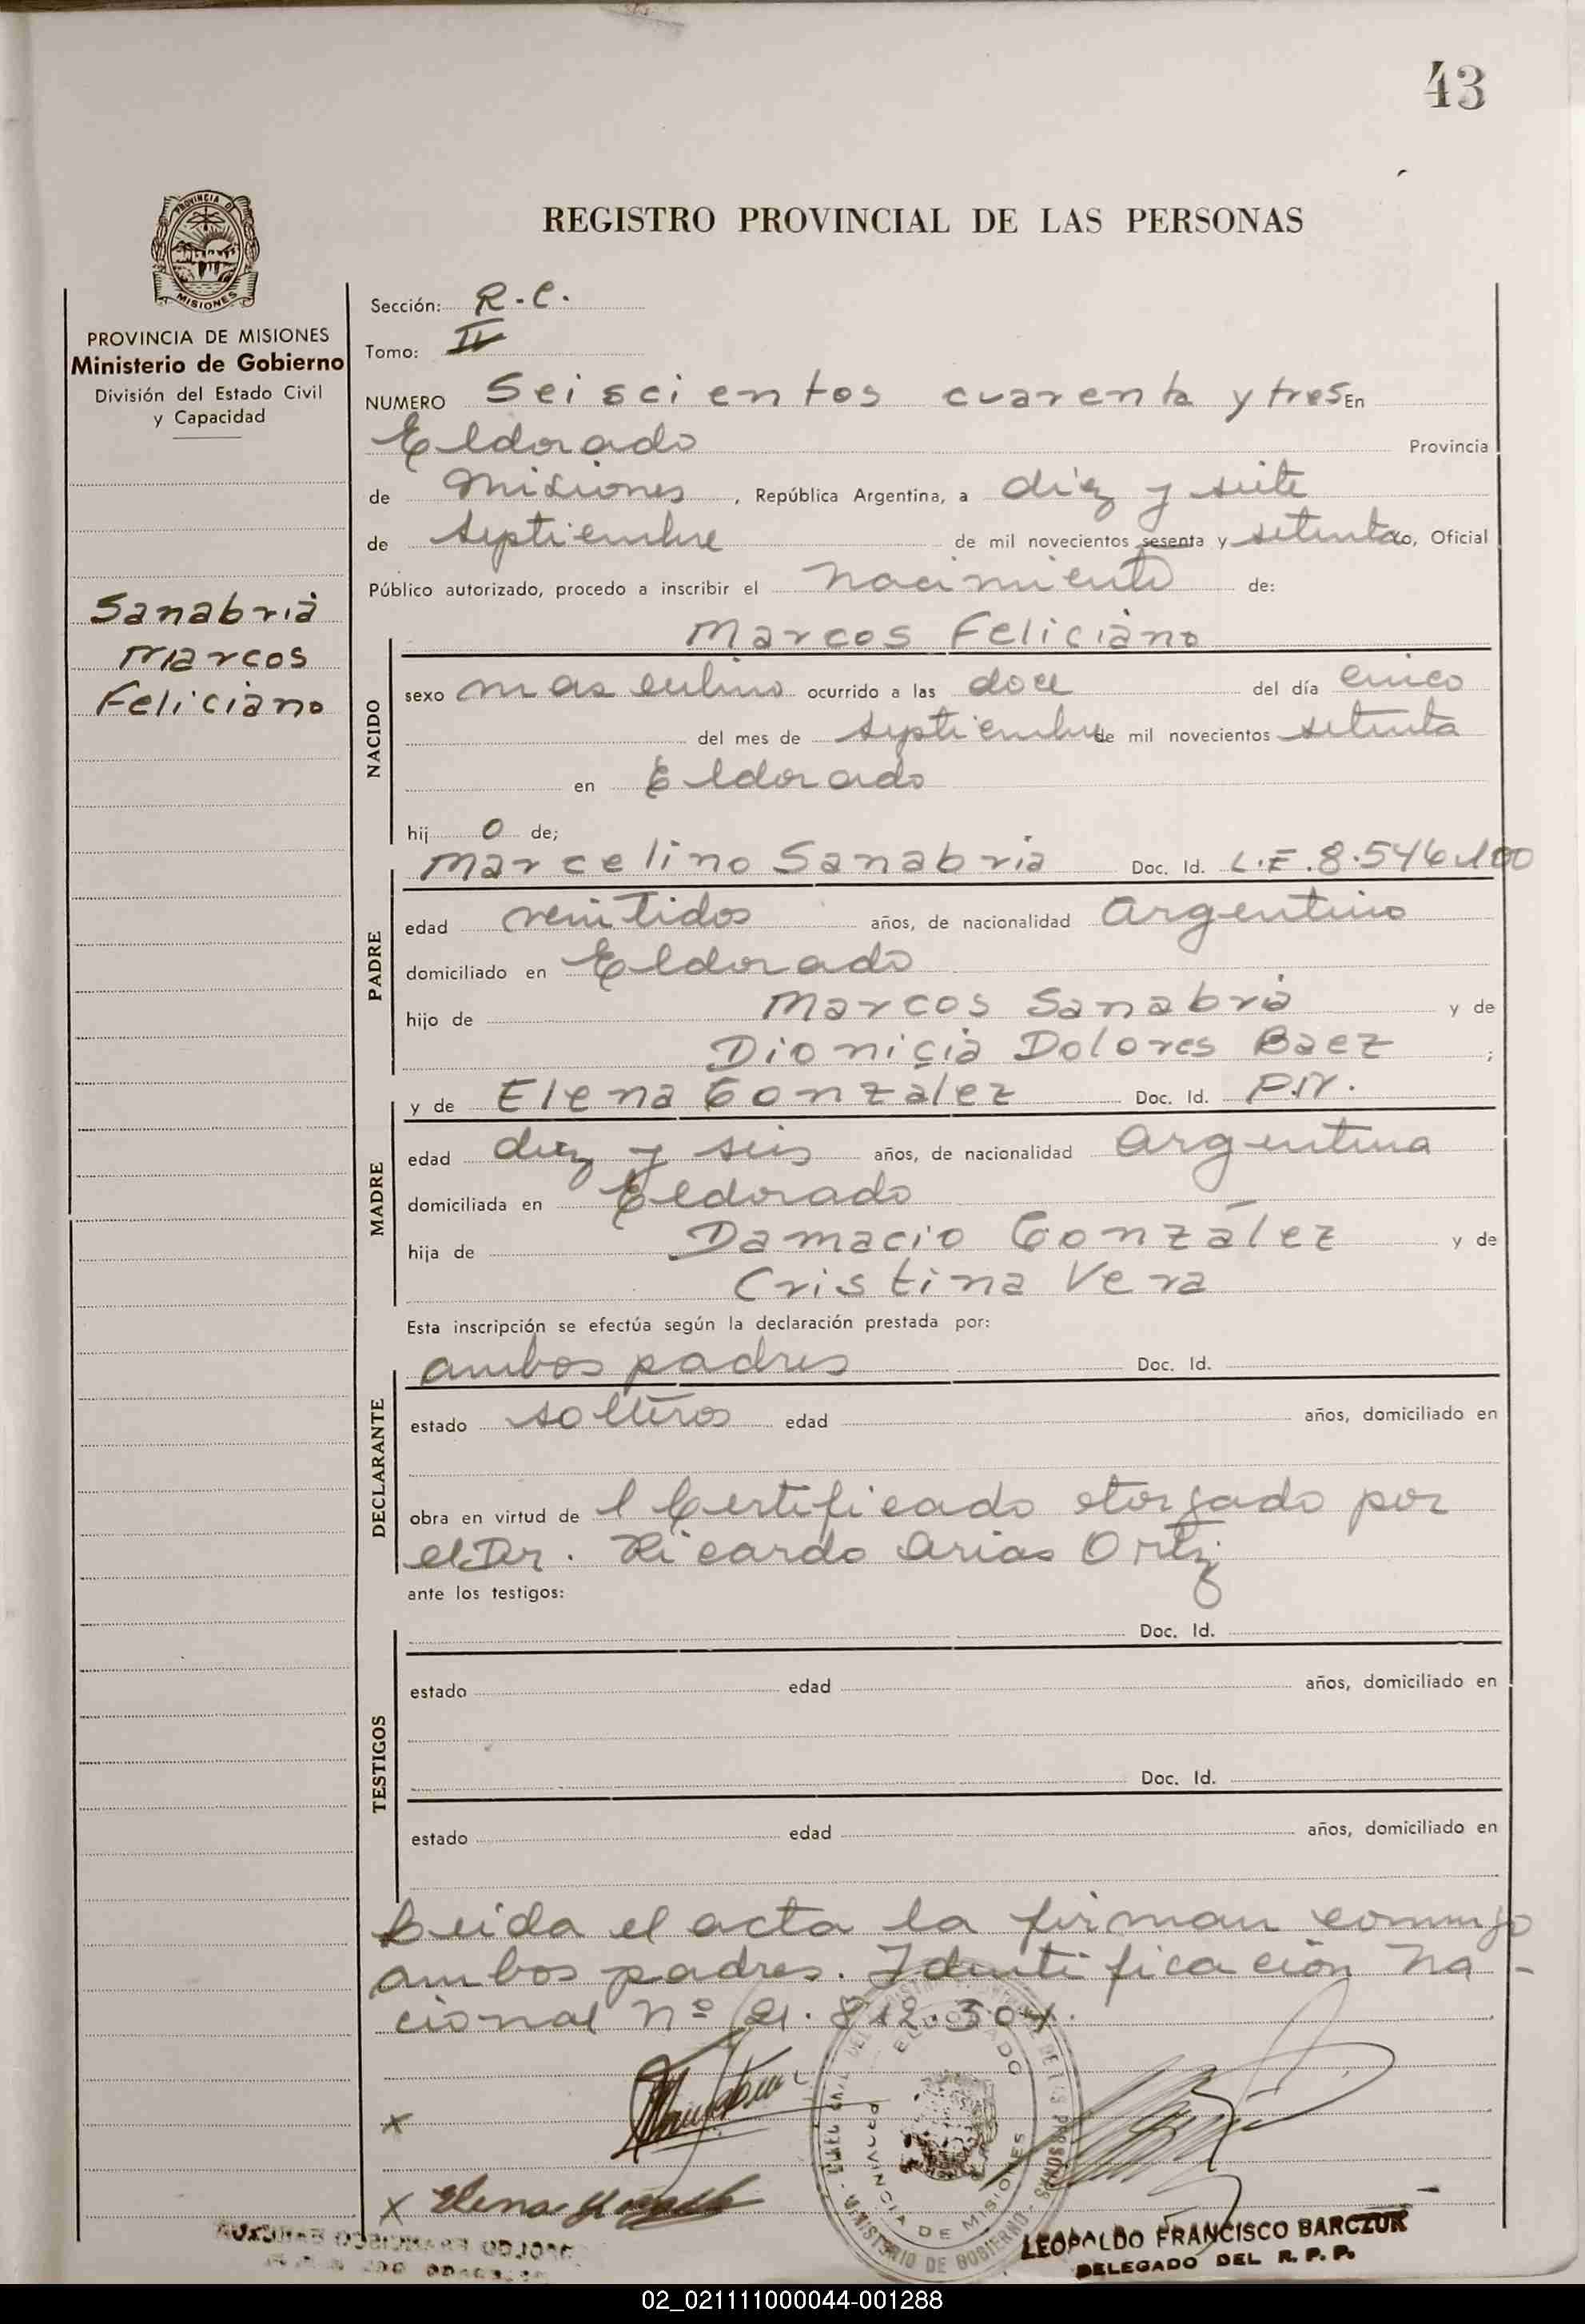 43
PROVINCIA DE
MISIONES
REGISTRO PROVINCIAL DE LAS PERSONAS
PROVINCIA DE MISIONES
Ministerio de Gobierno
División del Estado Civil
y Capacidad
Sanabria
Marcos
Feliciano
Sección: R-C.
Tomo: IV
NUMERO Seiscientos cuarenta y tres En
Eldorado Provincia
de Misiones, República Argentina, a diez y siete
de septiembre de mil novecientos sesenta y setenta Oficial
Público autorizado, procedo a inscribir el nacimiento de:
NACIDO
Marcos Feliciano
sexo masculino ocurrido a las doce del día cinco
del mes de septiembre de mil novecientos setenta
en Eldorado
hij o de;
PADRE
Marcelino Sanabria Doc. Id. L.E. 8.546.100
edad veintidos años, de nacionalidad Argentino
domiciliado en Eldorado
hijo de Marcos Sanabria y de
Dionicia Dolores Baez ;
MADRE
y de Elena González Doc. Id. P.N.
edad diez y seis años, de nacionalidad Argentina
domiciliada en Eldorado
hija de Damacio González y de
Cristina Vera
Esta inscripción se efectúa según la declaración prestada por:
DECLARANTE
ambos padres Doc. Id.
estado solteros edad años, domiciliado en
obra en virtud de l Certificado otorgado por
el Dr. Ricardo Arias Ortiz
ante los testigos:
TESTIGOS
Doc. Id.
estado edad años, domiciliado en
Doc. Id.
estado edad años, domiciliado en
Leida el acta la firman conmigo
ambos padres. Identificación Na-
cional Nº 21.812.304.
ELDORADO
PROVINCIA DE MISIONES
MINISTERIO DE GOBIERNO
X
X Elena
LEOPOLDO FRANCISCO BARCZUK
DELEGADO DEL R. P. P.
02_021111000044-001288